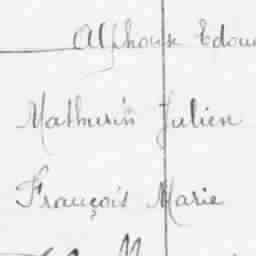 Alphonse Edou
Mathurin Julien
François Marie